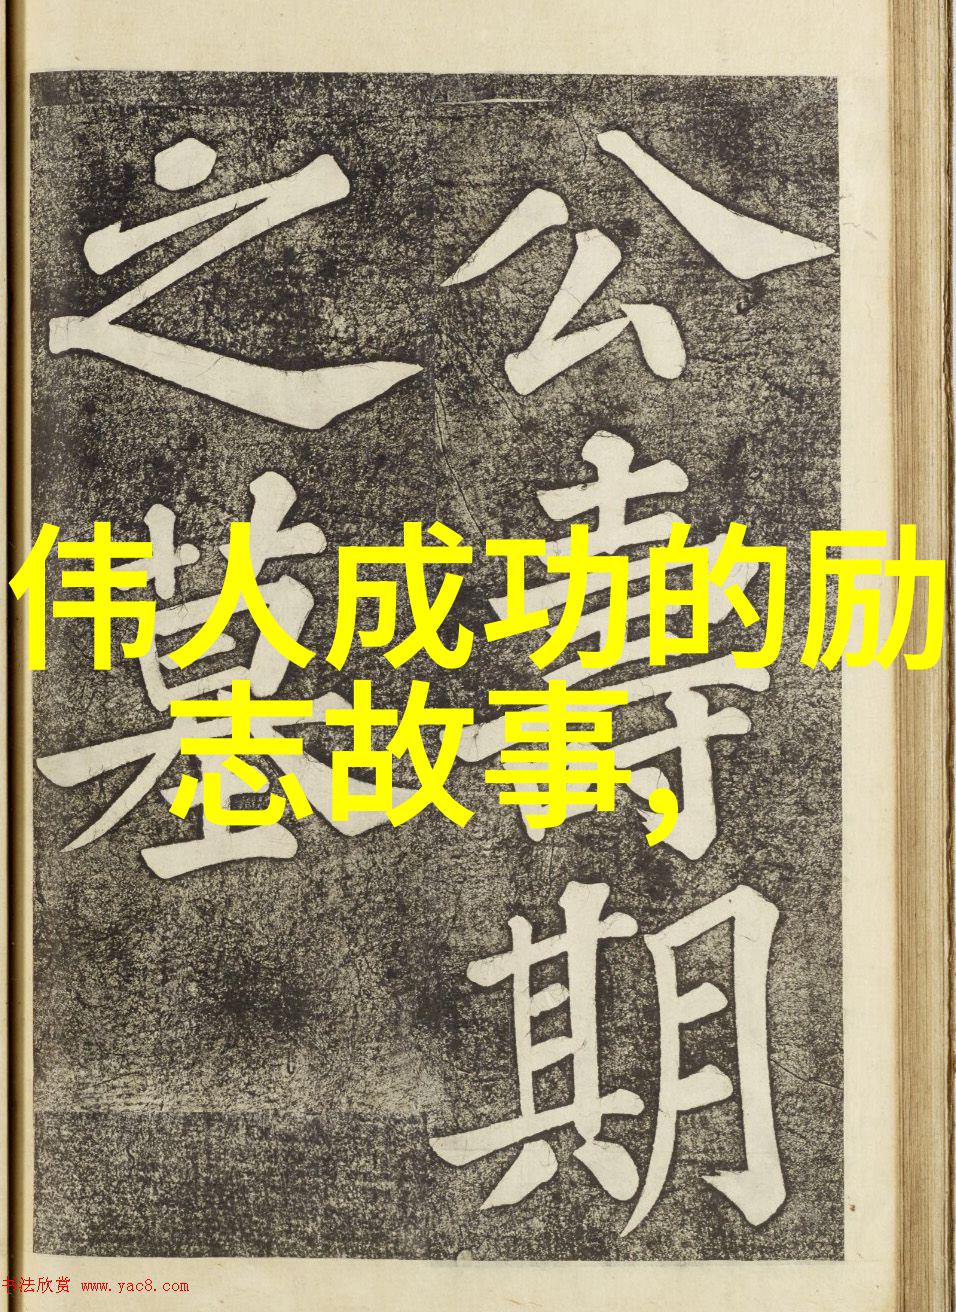 公壽期
之墓
伟人成功的励
志故事,
书法欣赏 www.yac8.com